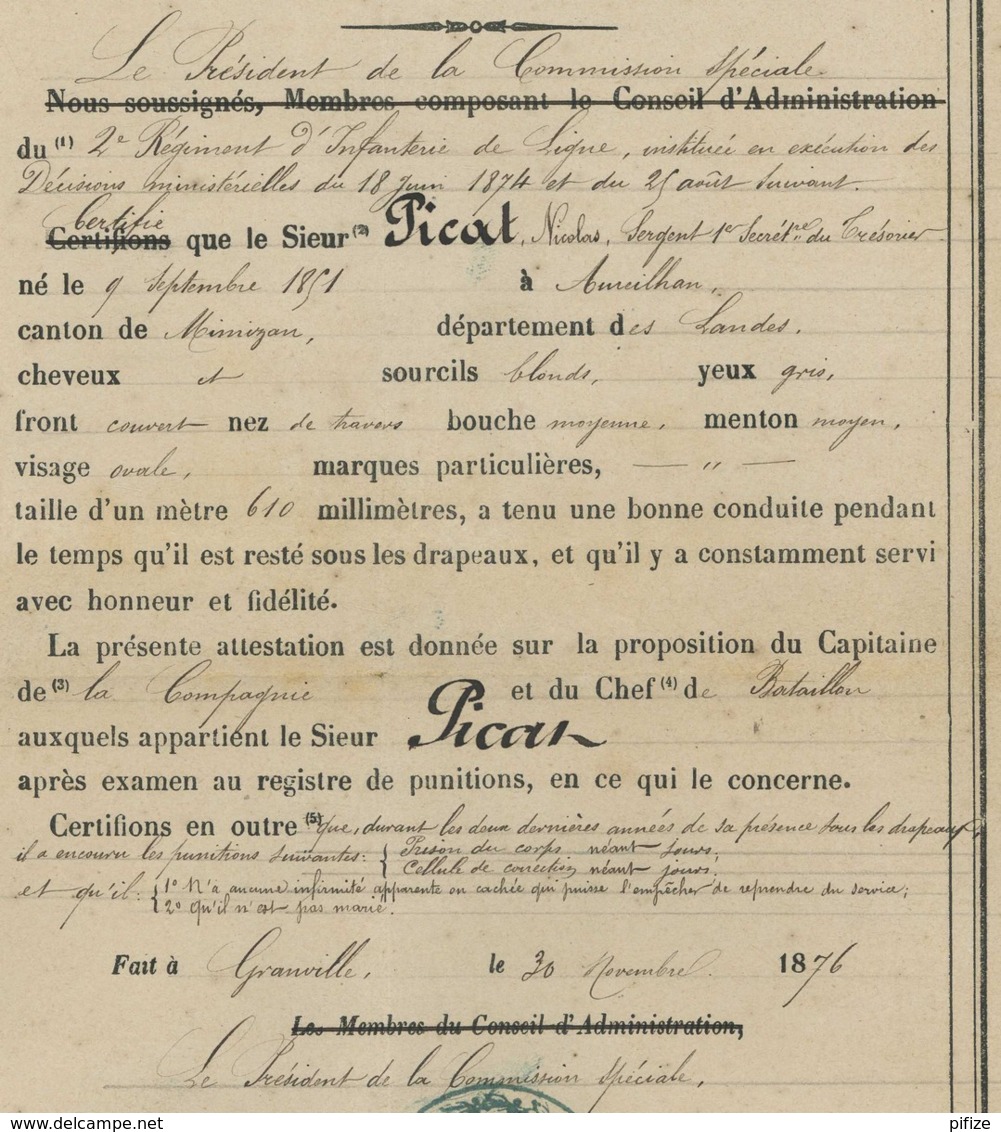 Le Président de la Commission Spéciale
Nous soussignés, Membres composant le Conseil d'Administration
du (1) 2e Régiment d'Infanterie de Ligne, instituée en exécution des
Décisions ministérielles du 18 Juin 1874 et du 25 août suivant.
Certifie
Certifions que le Sieur (2) Picat, Nicolas, Sergent 1er Secrétre du Trésorier
né le 9 Septembre 1851 à Aureilhan,
canton de Mimizan, département des Landes,
cheveux et sourcils blonds, yeux gris,
front couvert nez de travers bouche moyenne, menton moyen,
visage ovale, marques particulières, — " —
taille d'un mètre 610 millimètres, a tenu une bonne conduite pendant
le temps qu'il est resté sous les drapeaux, et qu'il y a constamment servi
avec honneur et fidélité.
La présente attestation est donnée sur la proposition du Capitaine
de (3) la Compagnie et du Chef (4) de Bataillon
auxquels appartient le Sieur Picat
après examen au registre de punitions, en ce qui le concerne.
Certifions en outre (5) que, durant les deux dernières années de sa présence sous les drapeaux,
il a encouru les punitions suivantes: { Prison du corps néant jours;
Cellule de correction néant jours;
et qu'il: { 1° N'a aucune infirmité apparente ou cachée qui puisse l'empêcher de reprendre du service;
2° qu'il n'est pas marié.
Fait à Granville, le 30 Novembre 1876
Les Membres du Conseil d'Administration,
Le Président de la Commission Spéciale,
www.delcampe.net
pifize